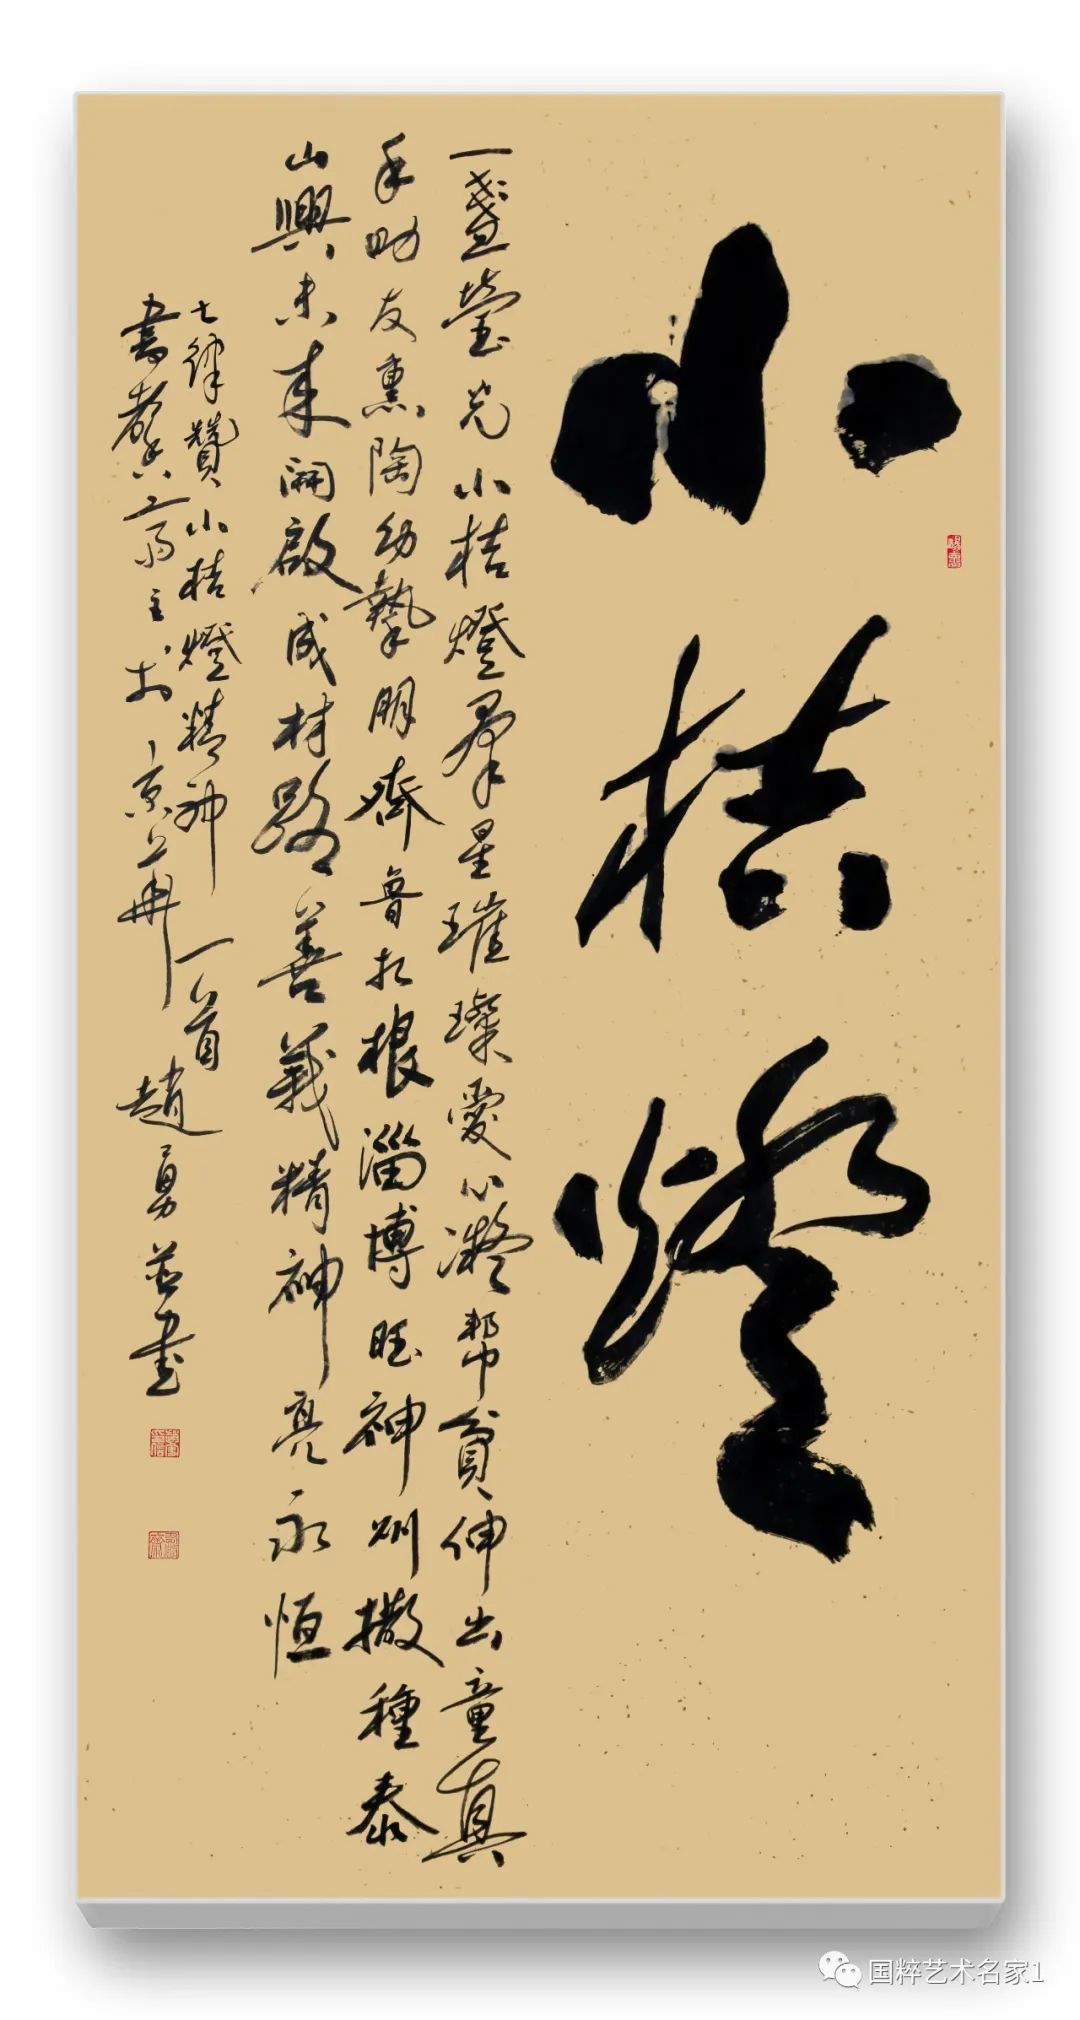 小桔燈
一盞螢光小桔燈羣星璀璨愛心凝幫貧伸出童真
手助友熏陶幼摯朋齊魯扎根淄博旺神州撒種泰
山興未来開啟成材路善義精神亮永恒
七律贊小桔燈精神一首
書馨齋主於京華趙勇並書
国粹艺术名家1